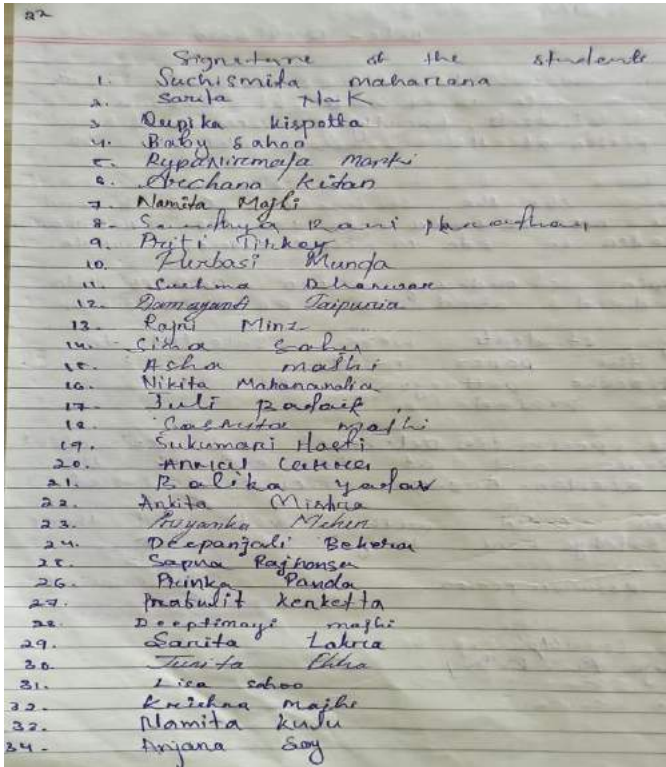 22
Signature of the students
1. Suchismita maharana
2. Sarita Nak
3 Rupika kispotta
4. Baby Sahoo
5. Manki
6. Archana kitan
7 Namita Majhi
8. Rani
9. Priti Tirkey
10. Munda
11. Dharuar
12. Damayanti Jaipuria
13. Rajni Minz
14. Sima Sahu
15. Asha majhi
16. Nikita Mahanandia
17- Juli
18. majhi
19. Sukumari
20.
21. Balika yadav
22. Ankita Mishra
23. Priyanka Meher
24. Deepanjali Behera
25. Sapna Rajhansa
26. Prinka Panda
27. kerketta
28. Deeptimayi majhi
29. Sarita Lakra
30
31. Lisa sahoo
32. Krishna majhi
33. Namita kulu
34- Anjana Soy